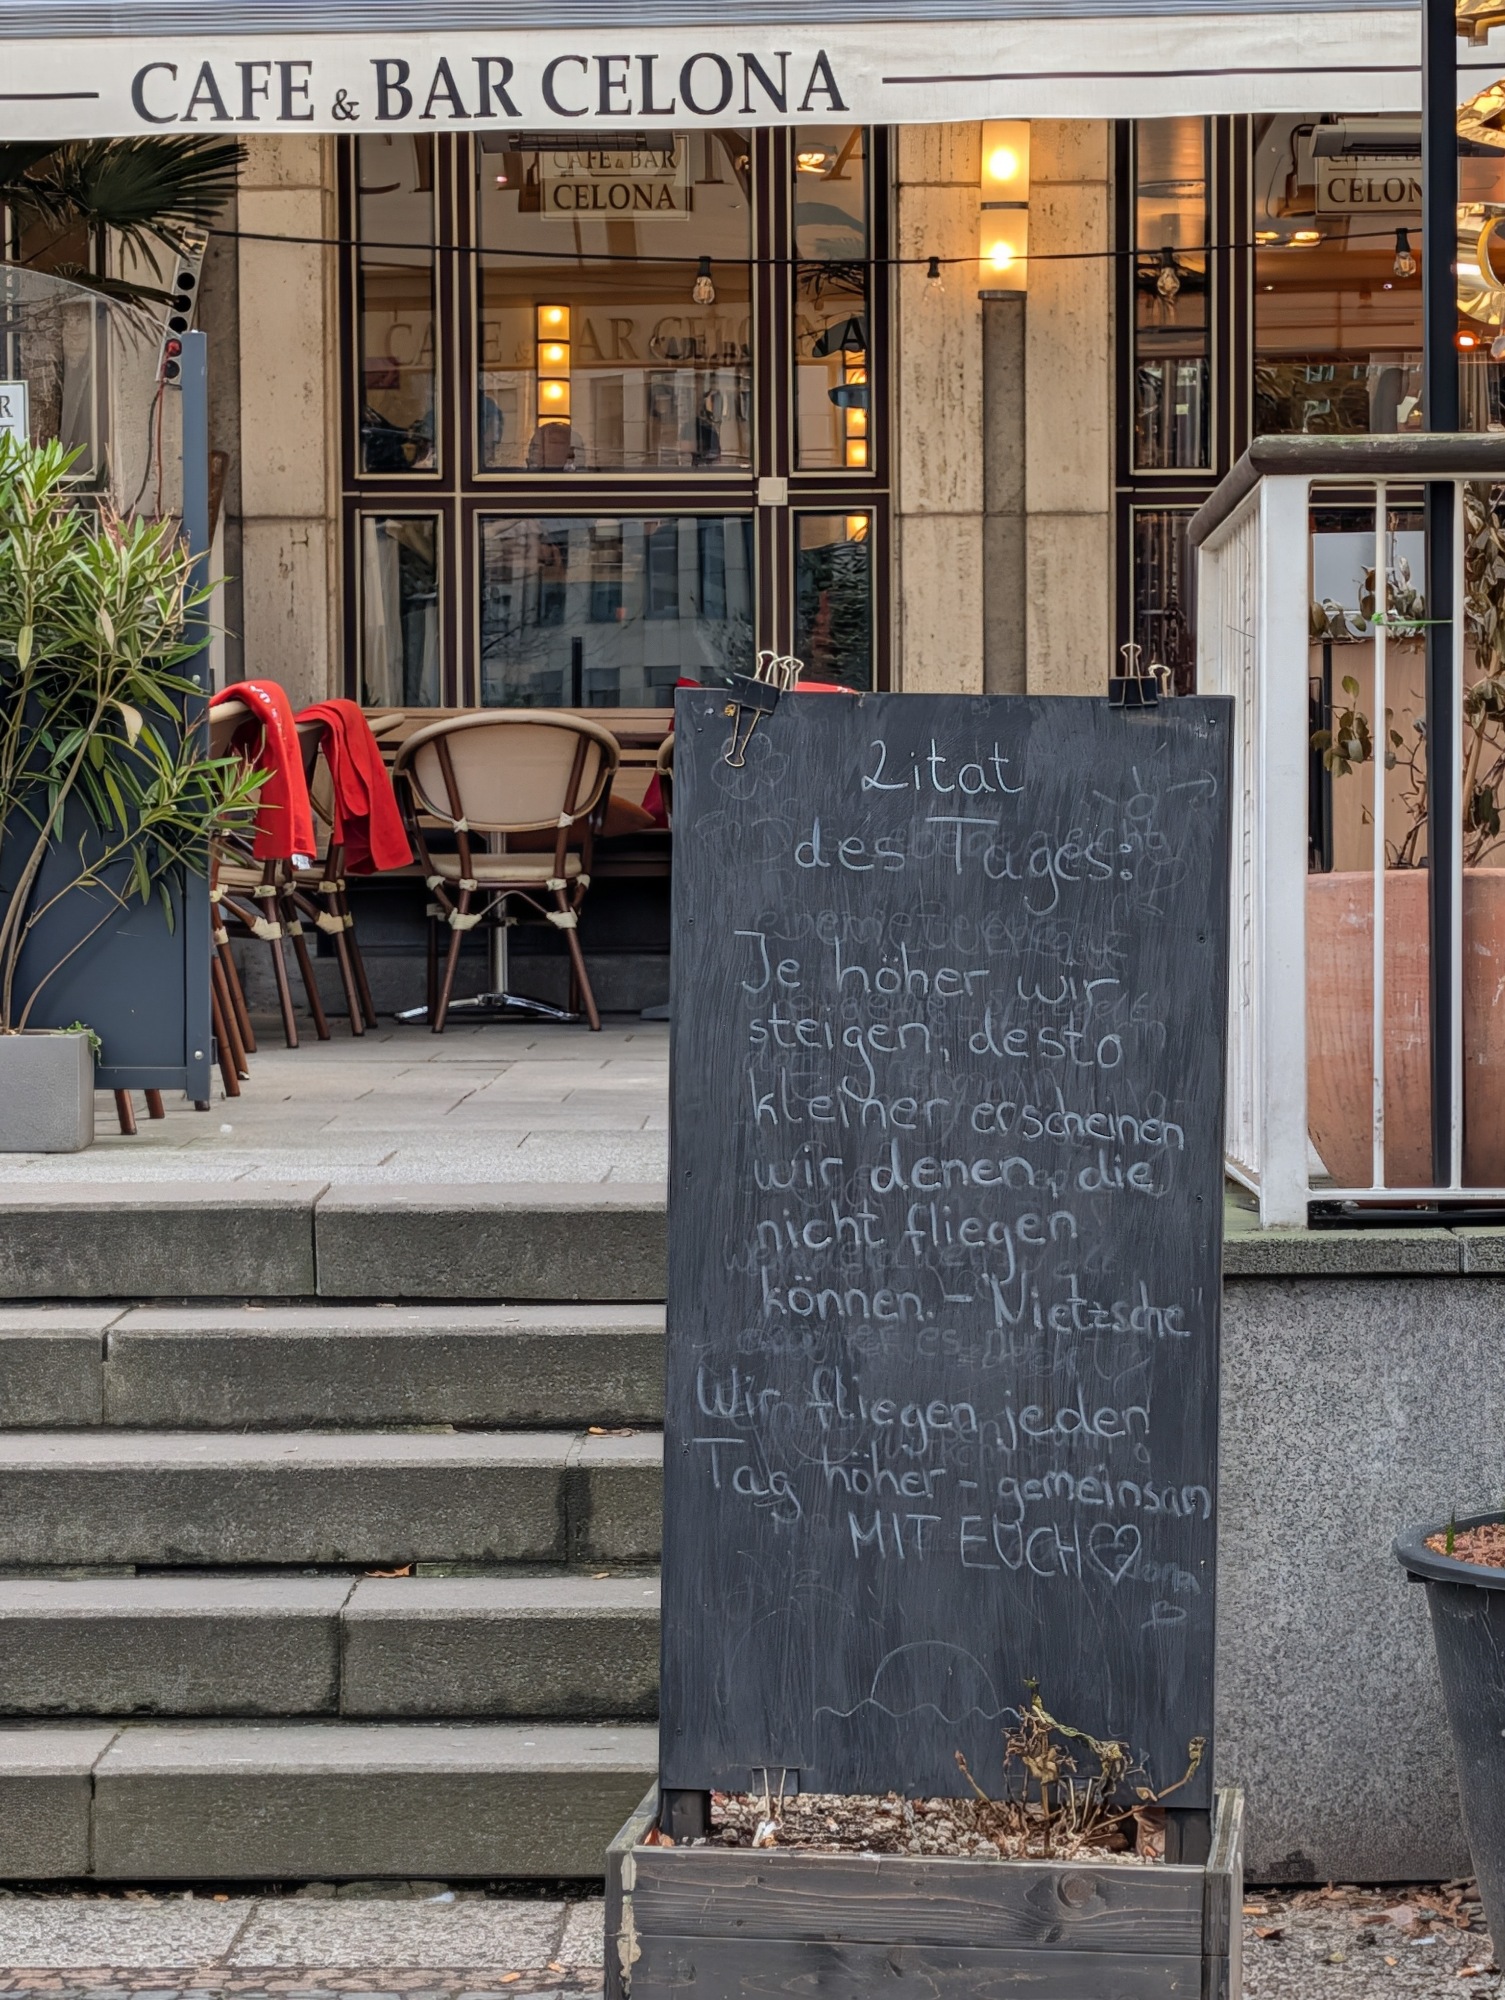 CAFE & BAR CELONA
CAFE & BAR
CELONA
CELON
CAFE & BAR CELONA
R
Zitat
des Tages:
Je höher wir
steigen, desto
kleiner erscheinen
wir denen, die
nicht fliegen
können. - Nietzsche
Wir fliegen jeden
Tag höher - gemeinsam
MIT EUCH♡